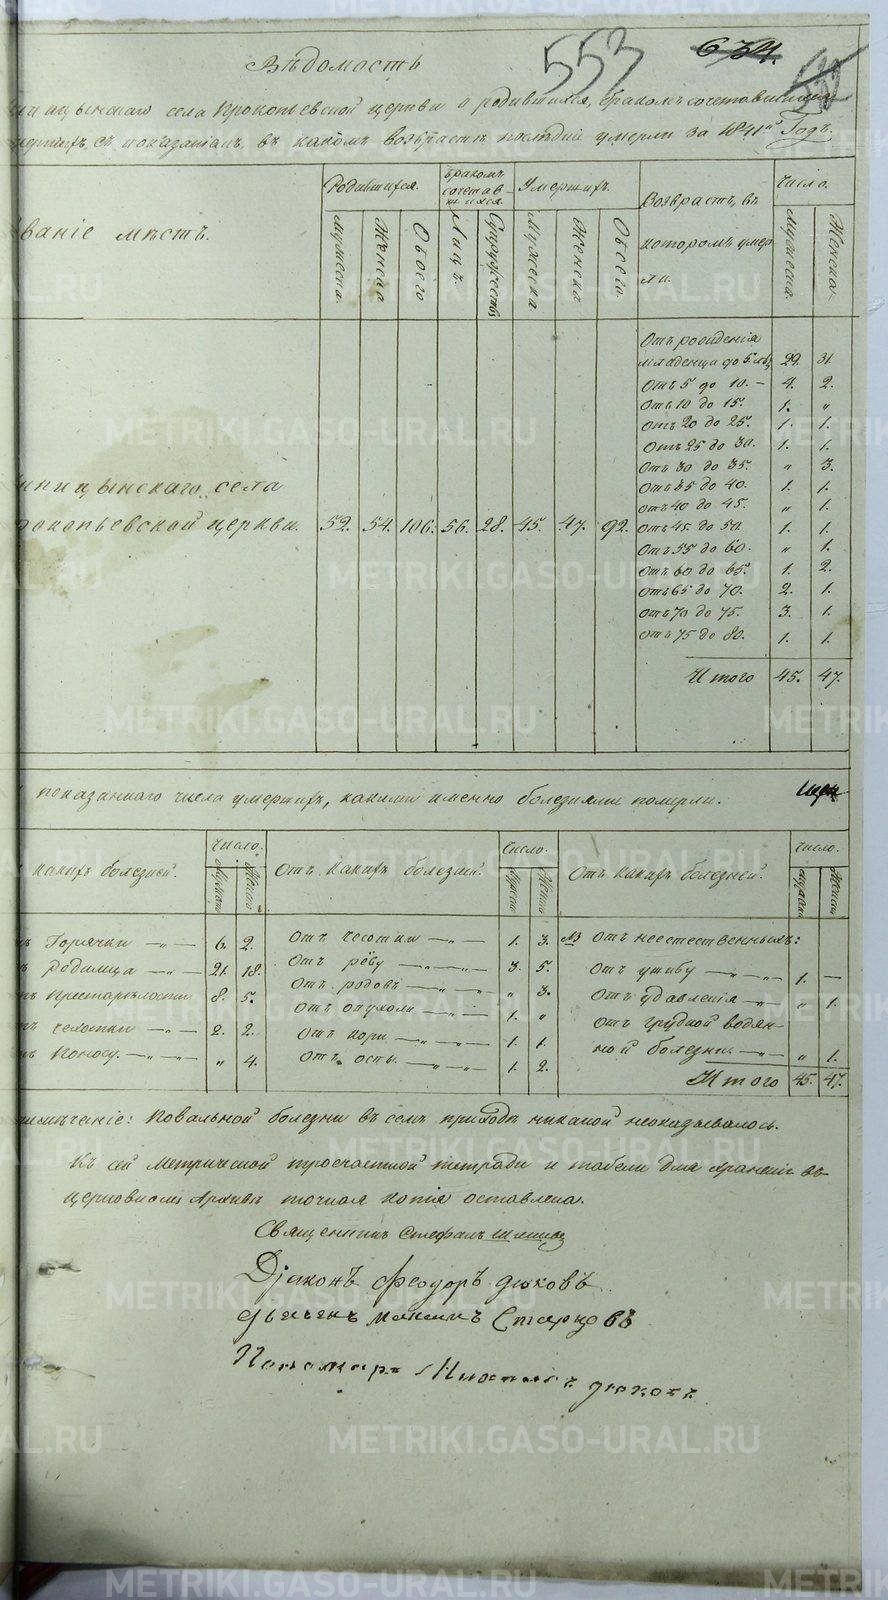 Вѣдомость
553
634.
села Прокопьевской церкви о родившихся, бракомъ сочетавшихся
съ показаніемъ въ какомъ возрастѣ послѣдніе умерли за 1841й Годъ.
ваніе мѣстъ.
Родившихся.
Бракомъ сочетавшихся.
Умершихъ.
Возрастъ, въ
которомъ умер
ли.
Число.
Мужеска.
Женска
Обоего
Лицъ.
Супружествъ
Мужеска.
Женска
Обоего.
Мужеска.
Женска.
Отъ рожденія
младенца до 5. лѣтъ 29. 31.
Отъ 5 до 10. — 4. 2.
Отъ 10 до 15. 1. „
Отъ 20 до 25. 1. 1.
Отъ 25 до 30. 1. 1.
Отъ 30 до 35. „ 3.
Отъ 35 до 40. 1. 1.
Отъ 40 до 45. „ 1.
ницынскаго села
рокопьевской церкви. 52. 54. 106. 56. 28. 45. 47. 92.
Отъ 45 до 50. 1. 1.
Отъ 55 до 60. „ 1.
Отъ 60 до 65. 1. 2.
Отъ 65 до 70. 2. 1.
Отъ 70 до 75. 3. 1.
Отъ 75 до 80. 1. 1.
Итого 45. 47.
показаннаго числа умершихъ, какими именно болезнями померли.
какихъ болезней.
Число.
Отъ какихъ болезней.
Число.
Отъ какихъ болезней.
Число.
Горячки — „ — 6. 2.
Родимца — „ — 21. 18.
Престарѣлости 8. 5.
Чахотки — „ — 2. 2.
Поносу. — „ — „ 4.
Отъ чесотки — „ — 1. 3.
Отъ рёву — „ — „ — 3. 5.
Отъ родовъ — „ — „ — „ 3.
Отъ опухоли — „ — 1. „
Отъ кори — „ — „ — 1. 1.
Отъ оспы. — „ — „ — 1. 2.
Отъ неестественныхъ:
Отъ ушибу — „ — „ — 1. —
Отъ удавленія — „ — „ 1.
Отъ грудной водян-
ной болезни — „ — „ 1.
Итого 45. 47.
мѣчаніе: Повальной болезни въ семъ приходѣ никакой неоказывалось.
Къ сей метрической троечастной тетради и табели для храненія въ
церковномъ Архивѣ точная копія оставлена.
Священникъ Стефанъ
Діаконъ Феодоръ Дюковъ
Дьячекъ Максимъ Старцовъ
Пономарь Дюковъ
METRIKI.GASO-URAL.RU